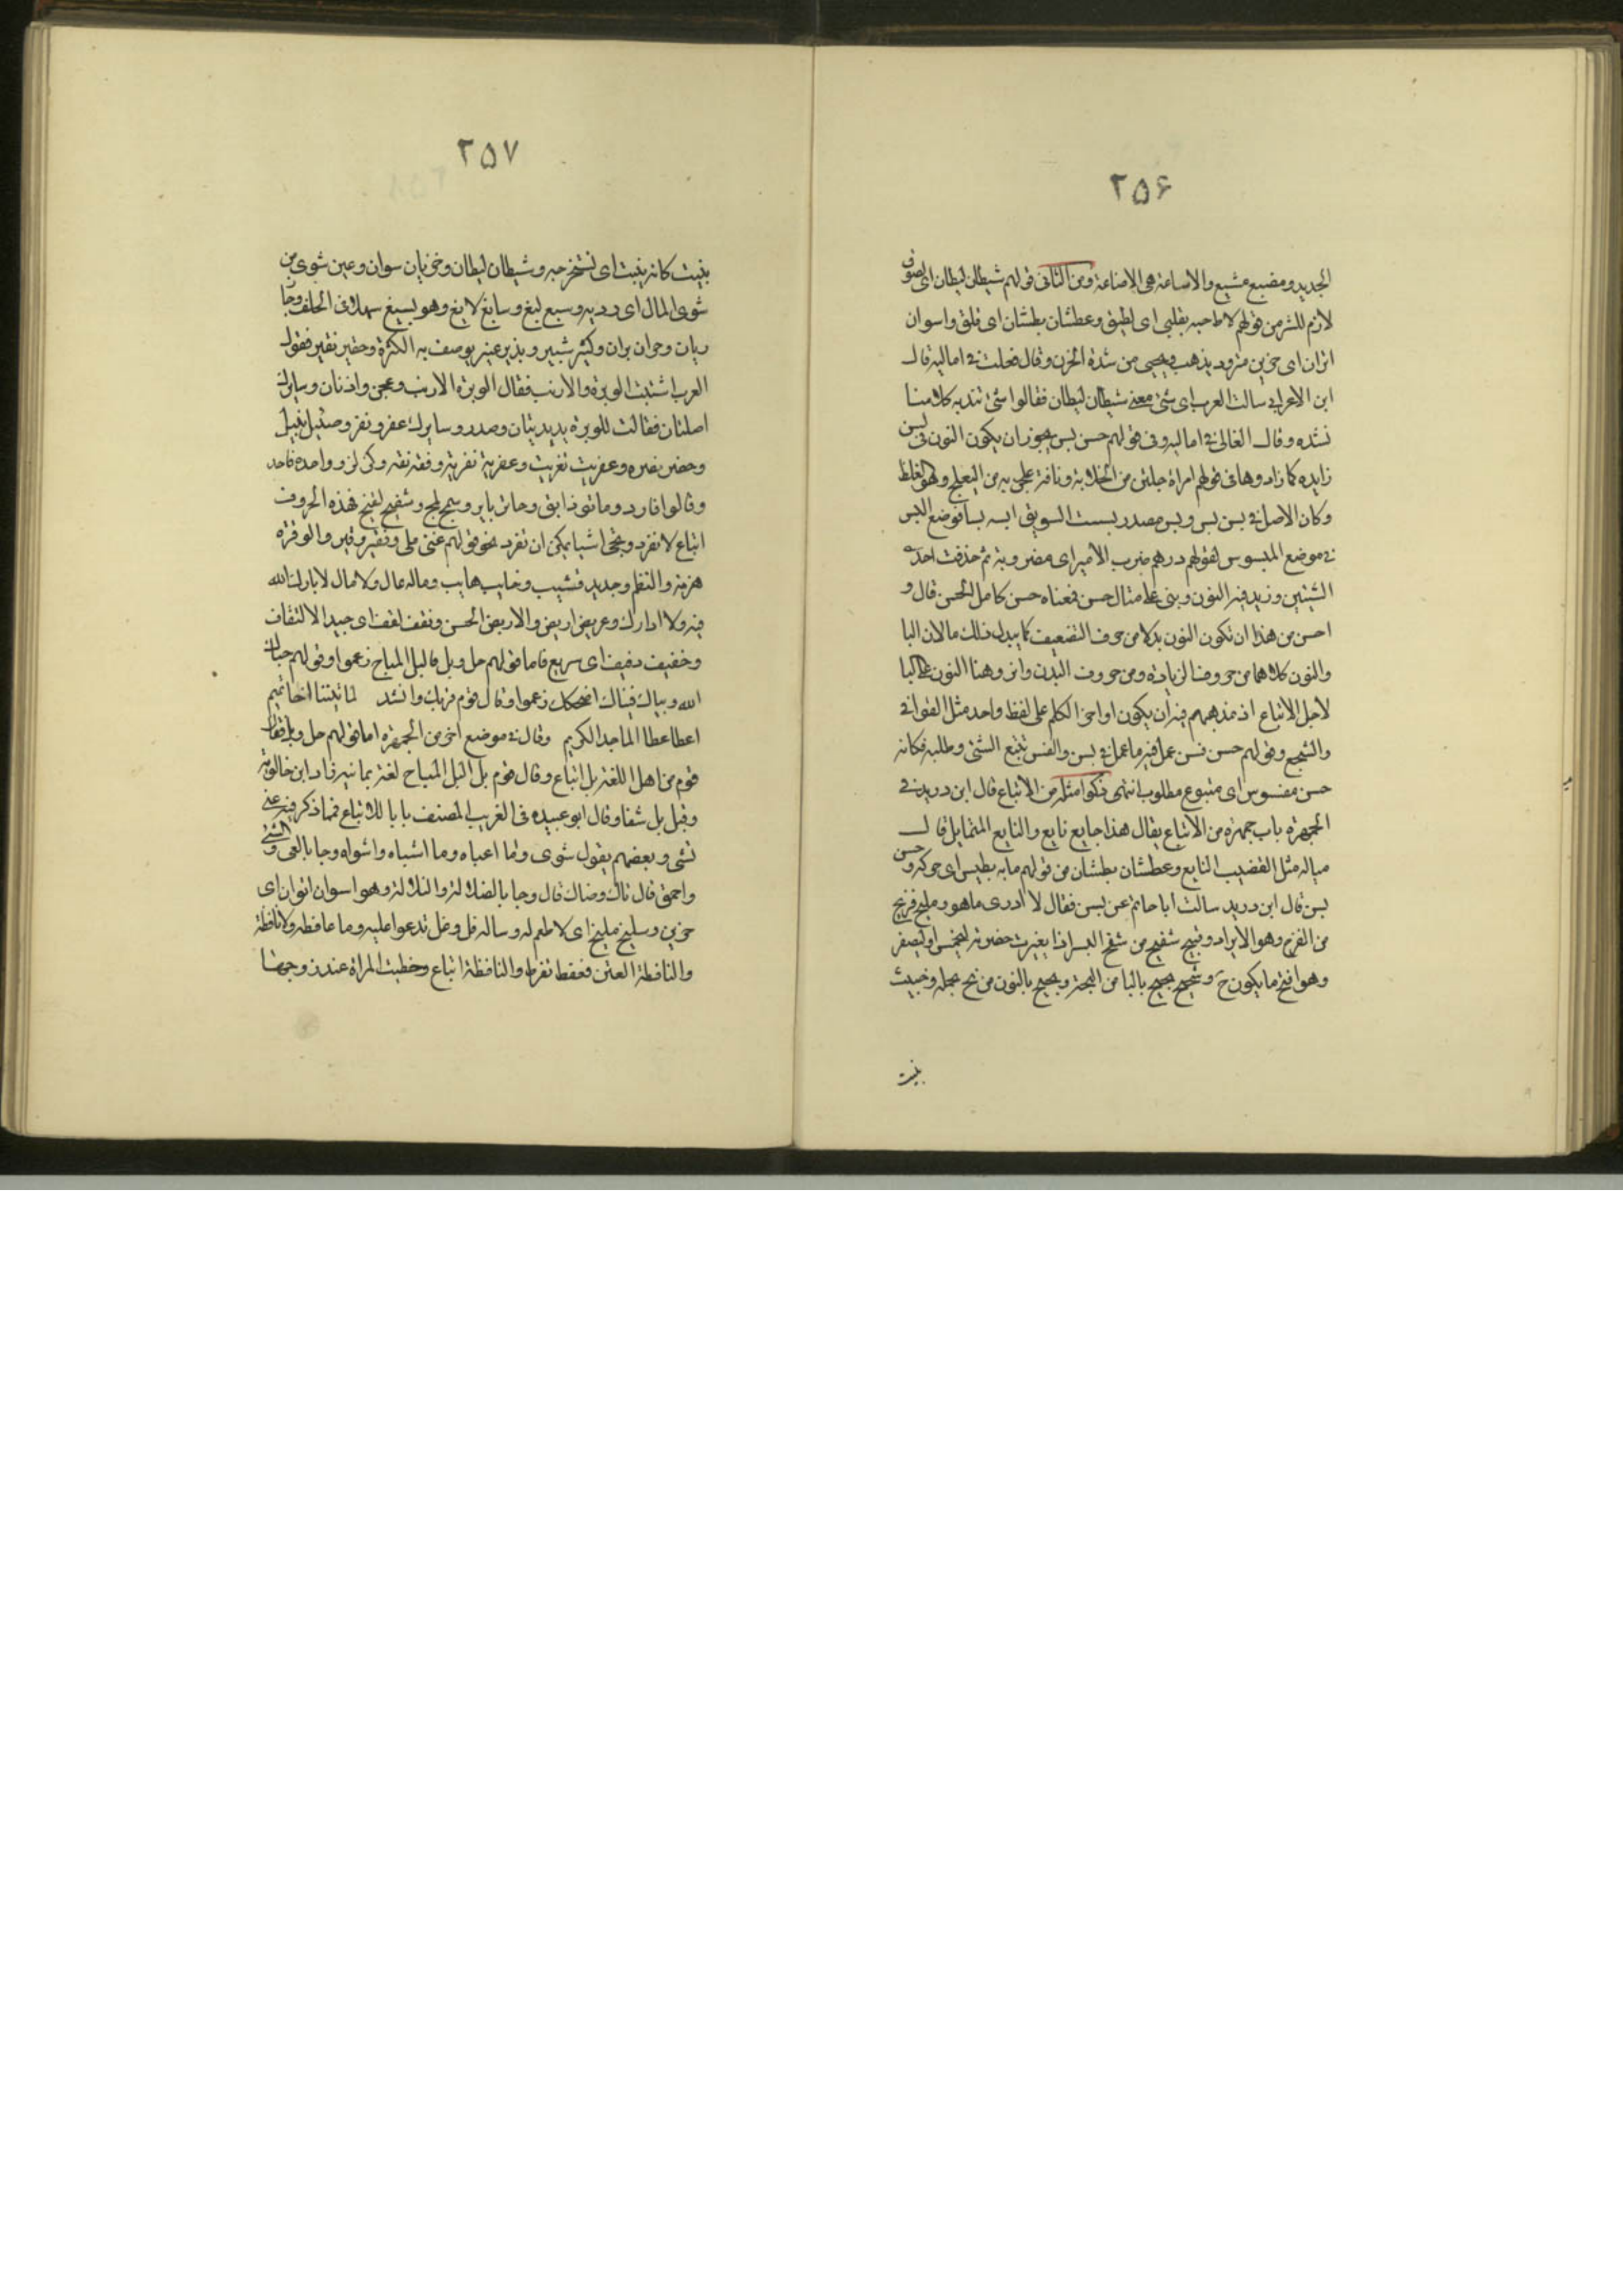 ٢٥۶
الجديد ومضيع مشيع والاساعة هى الاضاعة ومن الثانى قولهم شيطان ليطان اى لصوق
لازم للشر من قولهم لاط حبه بقلبى اى لصق وعطشان بطشان اى قلق واسوان
اتوان اى حزين متردد يذهب ويجيى من شدة الحزن وقال ثعلب فى اماليه قال
ابن الاعرابى سالت العرب اى شى معنى شيطان ليطان فقالوا شى نتد به كلامنا
نشده وقال القالى فى اماليه وفى قولهم حسن بسن يجوز ان يكون النون فى بسن
زايده كما زادوها فى قولهم امراة خلبن من الخلابة وناقة علجن من التعلج وهو الغلظ
وكان الاصل فى بسن بس وبس مصدر بسست السويق ابسه بسا فوضع البس
فى موضع المبسوس كقولهم درهم ضرب الامير اى مضروبه ثم حذفت احدى
السينين وزيد فيه النون وبنى على مثال حسن فمعناه حسن كامل الحسن قال و
احسن من هذا ان تكون النون بدلا من حرف التضعيف كما يبدل ذلك مالان اليا
والنون كلاهما من حروف الزيادة ومن حروف البدن واثر وهنا النون على اليا
لاجل الاتباع اذ مذهبهم فيه ان يكون اواخر الكلم على لفظ واحد مثل القوافى
والسجع وقولهم حسن قسن عمل فيه ما عمل فى بسن والقس تتبع الشى وطلبه فكانه
حسن مقسوس اى متبوع مطلوب انتهى ذكر امثلة من الاتباع قال ابن دريد فى
الجمهرة باب جمهرة من الاتباع يقال هذا جايع نايع والنايع المتمايل قال
مياله مثل القضيب النايع وعطشان بطشان من قولهم مابه بطيس اى حركه وحسن
بسن قال ابن دريد سالت ابا حاتم عن بسن فقال لا ادرى ماهو ومليح قزيح
من القزح وهو الابراد وقبيح شقيح من شقح البسر اذا تغيرت خضرته ليحمر او ليصفر
وهو اقبح ما يكون ح وشحيح بحيح باليا من البحة ونحيح بالنون من نح بحمله وخبيث
نبيث
٢٥٧
نبيث كانه ينبث اى يستخرجه وشيطان ليطان وخزيان سوان وعين شوى من
شوى المال اى رديه وسيع ليغ وسايغ لايغ وهو يسيغ سهلا فى الحلق وحار
ريان وحران بران وكثير بثير وبذير عفير يوصف به الكثرة وحقير نقير فقول
العرب اشتبت الوبرة والارنب فقال الوبرة الارنب وعجز واذنان وسايرك
اصلتان فقالت للوبرة يديديتان وصدر وسايرك عفر ونقر وضئيل بئيل
وخضر نضره وعفريت نفريت وعفرية نفرية وفقه نقه وكز لز وواحده قاحد
وقالوا فارد ومائق ذائق وحائر باير وسمج لمج وشقيح لقيح فهذه الحروف
اتباع لا تفرد وتجى اشيا يمكن ان تفرد نحو قولهم غنى ملى وفقير وقير والوقرة
هزمه والنظم وجديد قشيب وخايب هايب وماله عال ولا مال لا بارك الله
فيه ولا دارك وعريض اريض والاريض الحسن وثقف لقف اى جيد الالتقاف
وخفيف ذفيف اى سريع فاما قولهم حل وبل فالبل المباح زعموا وقولهم حياك
الله وبياك فبياك اضحكك زعموا وقال قوم قربك وانشد لما تبينا اخا تميم
اعطا عطا الماجد الكريم وقال فى موضع اخر من الجمهرة اما قولهم حل وبل فقال
قوم من اهل اللغة بل اتباع وقال قوم بل البل المباح لغة يمانيه زاد ابن خالويه
وقيل بل شفا وقال ابو عبيده فى الغريب المصنف بابا للاتباع فما ذكر فيه عى
شى وبعضهم يقول شوى وما اعياه وما اشياه واشواه وجا بالعى والشى
واحمق فاك تاك وضاك قال وجا بالضلالة والتلالة وهو اسوان اتوان اى
حزين وسليخ مليخ اى لا طعم له وساله قل وغل تدعوا عليه وما عافطه ولا نافطه
والنافطة العنز فعفط تضرط والنافطة اتباع وحظيت المراة عند زوجها